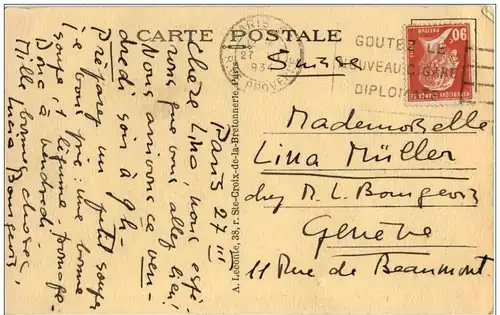 CARTE POSTALE
PARIS
27
1934
RUE PROVENCE
GOUTEZ LE
NOUVEAU CIGARE
DIPLOM
90
POSTES
Suisse
Paris 27 III
Chère Lina, nous espé-
rons que vous allez bien.
Nous arrivons ce ven-
dredi soir à 9 h
Préparez un petit souper
je vous prie : une bonne
soupe, 1 légume - fromage.
Donc à vendredi.
Mille bonnes choses,
Lucia Bourgeois
A. Leconte, 38, r. Ste-Croix-de-la-Bretonnerie, Paris
Mademoiselle
Lina Müller
chez M. L. Bourgeois
Genève
11 Rue de Beaumont.